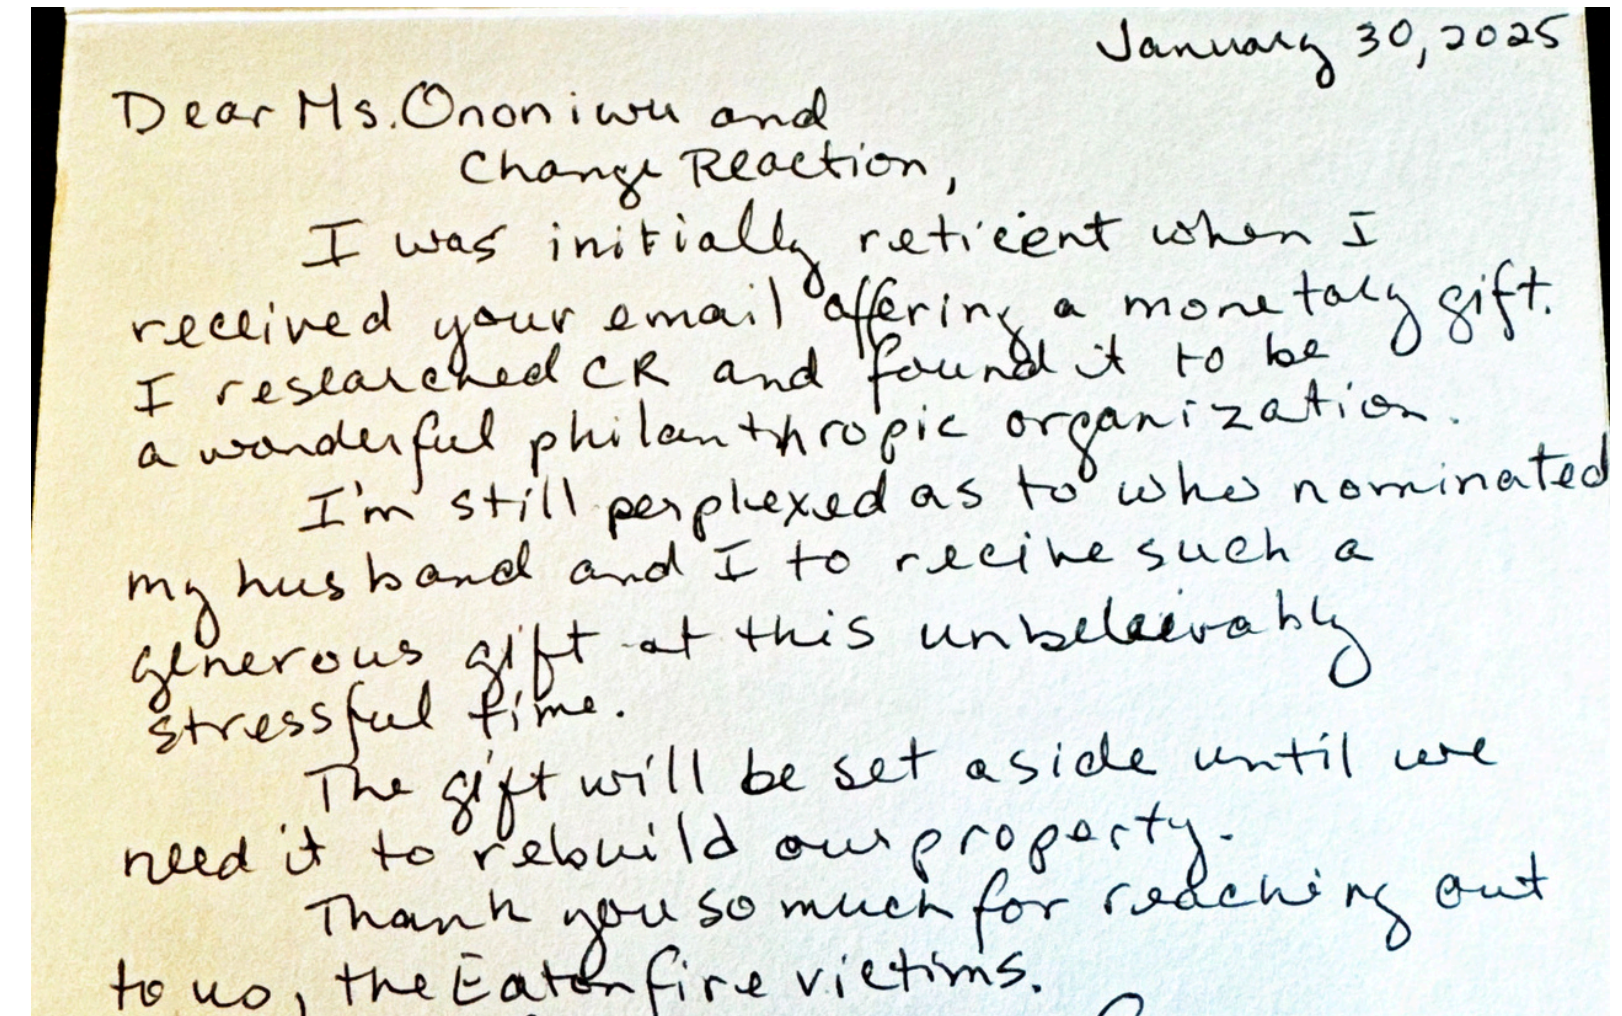 January 30, 2025
Dear Ms. Ononiwu and
Change Reaction,
I was initially reticent when I
received your email offering a monetary gift.
I researched CR and found it to be
a wonderful philanthropic organization.
I'm still perplexed as to who nominated
my husband and I to recive such a
generous gift at this unbeleivably
stressful time.
The gift will be set aside until we
need it to rebuild our property.
Thank you so much for reaching out
to us, the Eaton fire victims.